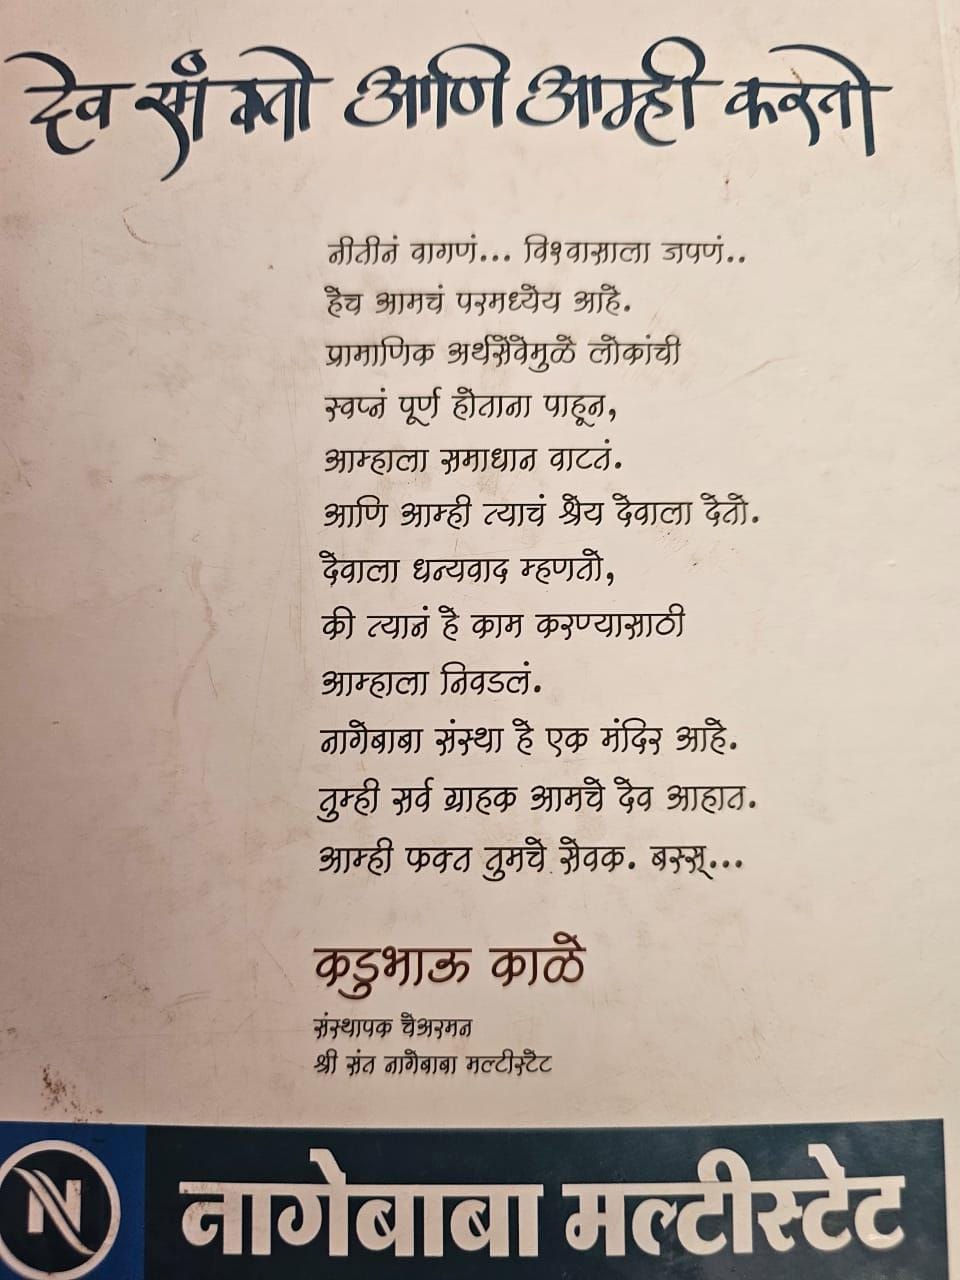 देव सांगतो आणि आम्ही करतो
नीतीनं वागणं... विश्वासाला जपणं..
हेच आमचं परमध्येय आहे.
प्रामाणिक अर्थसेवेमुळे लोकांची
स्वप्नं पूर्ण होताना पाहून,
आम्हाला समाधान वाटतं.
आणि आम्ही त्याचं श्रेय देवाला देतो.
देवाला धन्यवाद म्हणतो,
की त्यानं हे काम करण्यासाठी
आम्हाला निवडलं.
नागेबाबा संस्था हे एक मंदिर आहे.
तुम्ही सर्व ग्राहक आमचे देव आहात.
आम्ही फक्त तुमचे सेवक. बस्स्...
कडुभाऊ काळे
संस्थापक चेअरमन
श्री संत नागेबाबा मल्टीस्टेट
N
नागेबाबा मल्टीस्टेट